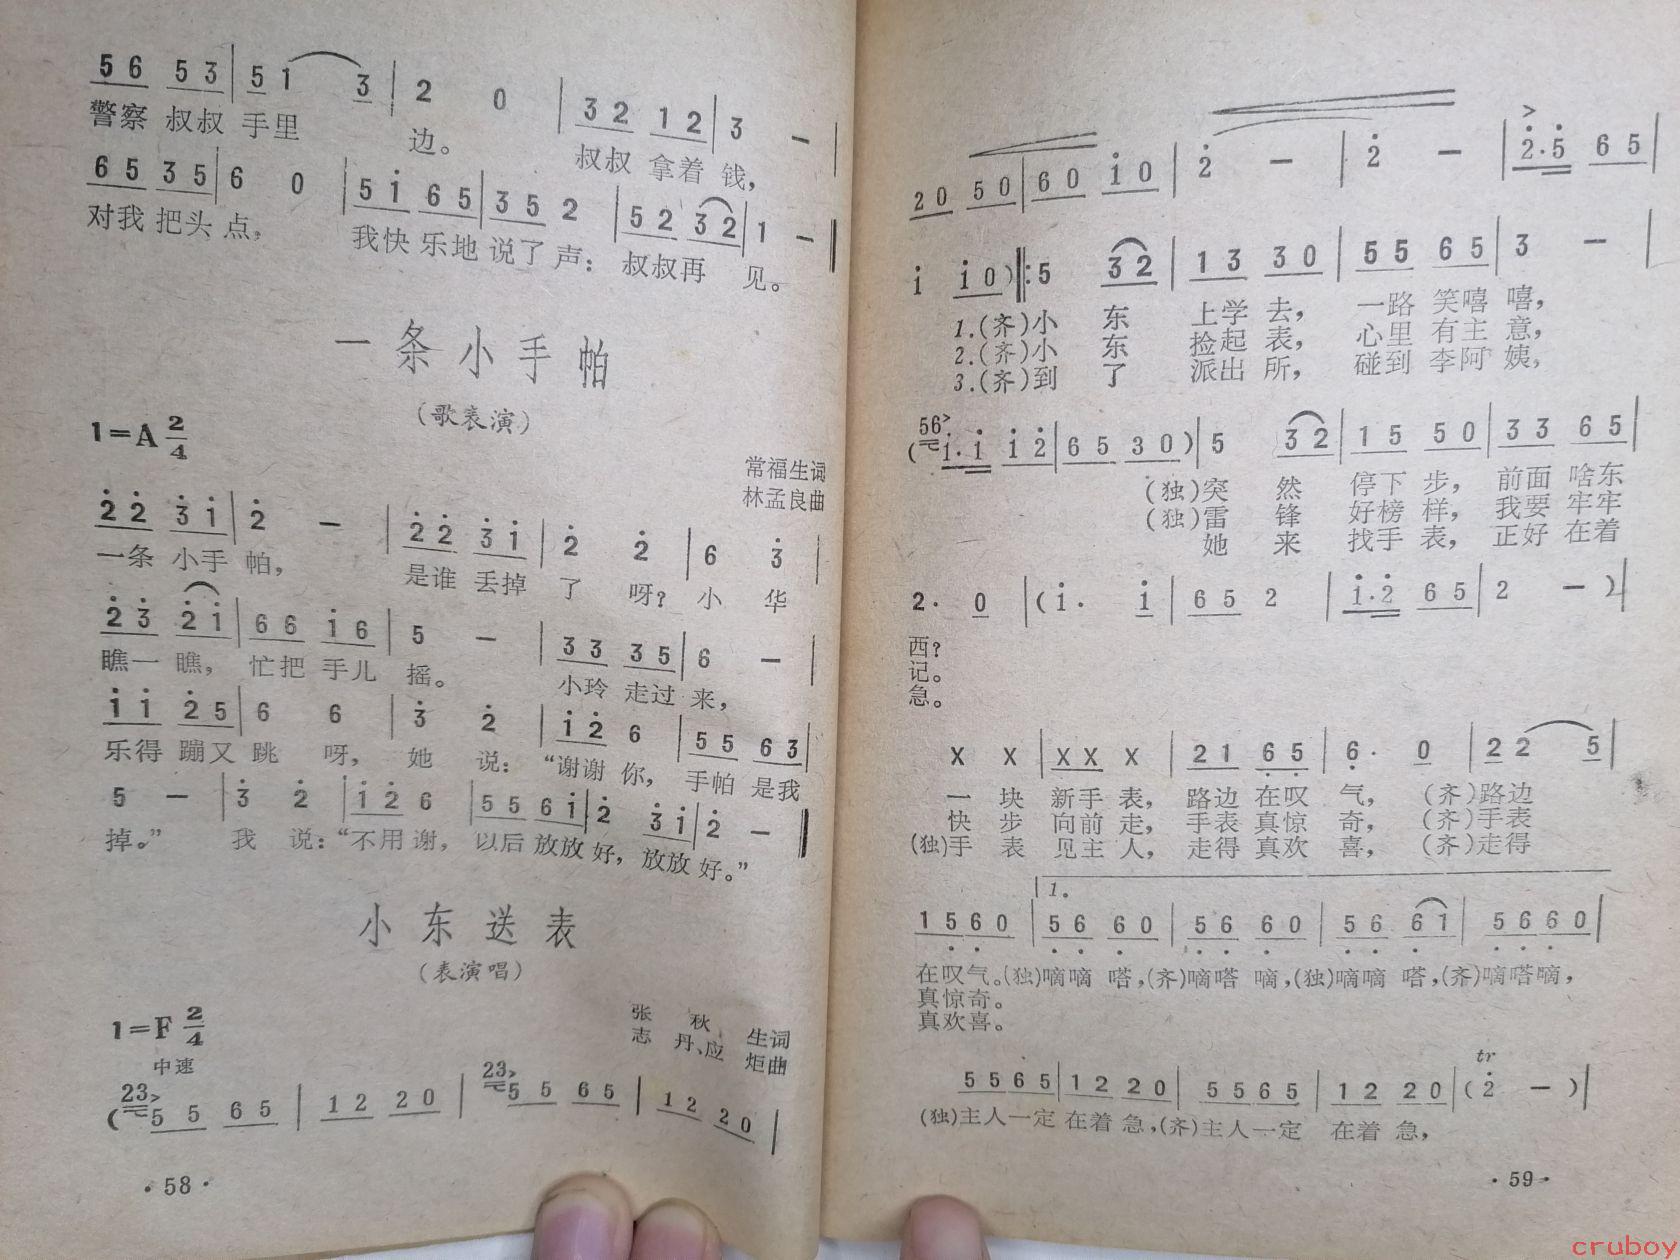 5 6 5 3 | 5 1 3 | 2 0 | 3 2 1 2 | 3 — |
警察 叔叔 手里 边。 叔叔 拿着 钱,
6 5 3 5 | 6 0 | 5 i 6 5 | 3 5 2 | 5 2 3 2 | 1 — ‖
对我 把头 点, 我快 乐地 说了 声: 叔叔再 见。
一条小手帕
(歌表演)
1=A 2/4
常福生词
林孟良曲
2̇ 2̇ 3̇ i | 2̇ — | 2̇ 2̇ 3̇ i | 2̇ 2̇ | 6 3̇ |
一条 小手 帕, 是谁 丢掉 了 呀? 小 华
2̇ 3̇ 2̇ i | 6 6 i 6 | 5 — | 3 3 3 5 | 6 — |
瞧一 瞧, 忙把 手儿 摇。 小玲 走过 来,
i i 2̇ 5 | 6 6 | 3̇ 2̇ | i 2̇ 6 | 5 5 6 3 |
乐得 蹦又 跳 呀, 她 说: “谢谢 你, 手帕 是我
5 — | 3̇ 2̇ | i 2̇ 6 | 5 5 6 i | 2̇ 3̇ i | 2̇ — ‖
掉。” 我 说:“不用 谢, 以后 放放 好, 放放 好。”
小东送表
(表演唱)
1=F 2/4
张 秋 生词
志 丹、应 炬曲
中速
( 23> 5 5 6 5 | 1 2 2 0 | 23> 5 5 6 5 | 1 2 2 0 |
·58·
2 0 5 0 | 6 0 i 0 | 2̇ — | 2̇ — | >2̇·5̇ 6 5 |
i i 0 ) ‖: 5 3 2 | 1 3 3 0 | 5 5 6 5 | 3 — |
1.(齐)小 东 上学 去, 一路 笑嘻 嘻,
2.(齐)小 东 捡起 表, 心里 有主 意,
3.(齐)到 了 派出 所, 碰到 李阿 姨,
( 56> i·i i 2̇ | 6 5 3 0 ) | 5 3 2 | 1 5 5 0 | 3 3 6 5 |
(独)突 然 停下 步, 前面 啥东
(独)雷 锋 好榜 样, 我要 牢牢
她 来 找手 表, 正好 在着
2· 0 | ( i· i | 6 5 2 | i·2̇ 6 5 | 2 — ) |
西?
记。
急。
X X | X X X | 2 1 6̣ 5̣ | 6̣· 0 | 2 2 5 |
一 块 新手 表, 路边 在叹 气, (齐)路边
快 步 向前 走, 手表 真惊 奇, (齐)手表
(独)手 表 见主 人, 走得 真欢 喜, (齐)走得
1.
1 5̣ 6̣ 0 | 5̣ 6̣ 6̣ 0 | 5̣ 6̣ 6̣ 0 | 5̣ 6̣ 6̣ 1 | 5̣ 6̣ 6̣ 0 |
在叹气。(独)嘀嘀 嗒,(齐)嘀嗒 嘀,(独)嘀嘀 嗒,(齐)嘀嗒嘀,
真惊奇。
真欢喜。
5 5 6 5 | 1 2 2 0 | 5 5 6 5 | 1 2 2 0 | ( tr 2̇ — ) |
(独)主人一定 在着 急,(齐)主人一定 在着 急,
·59·
cruboy